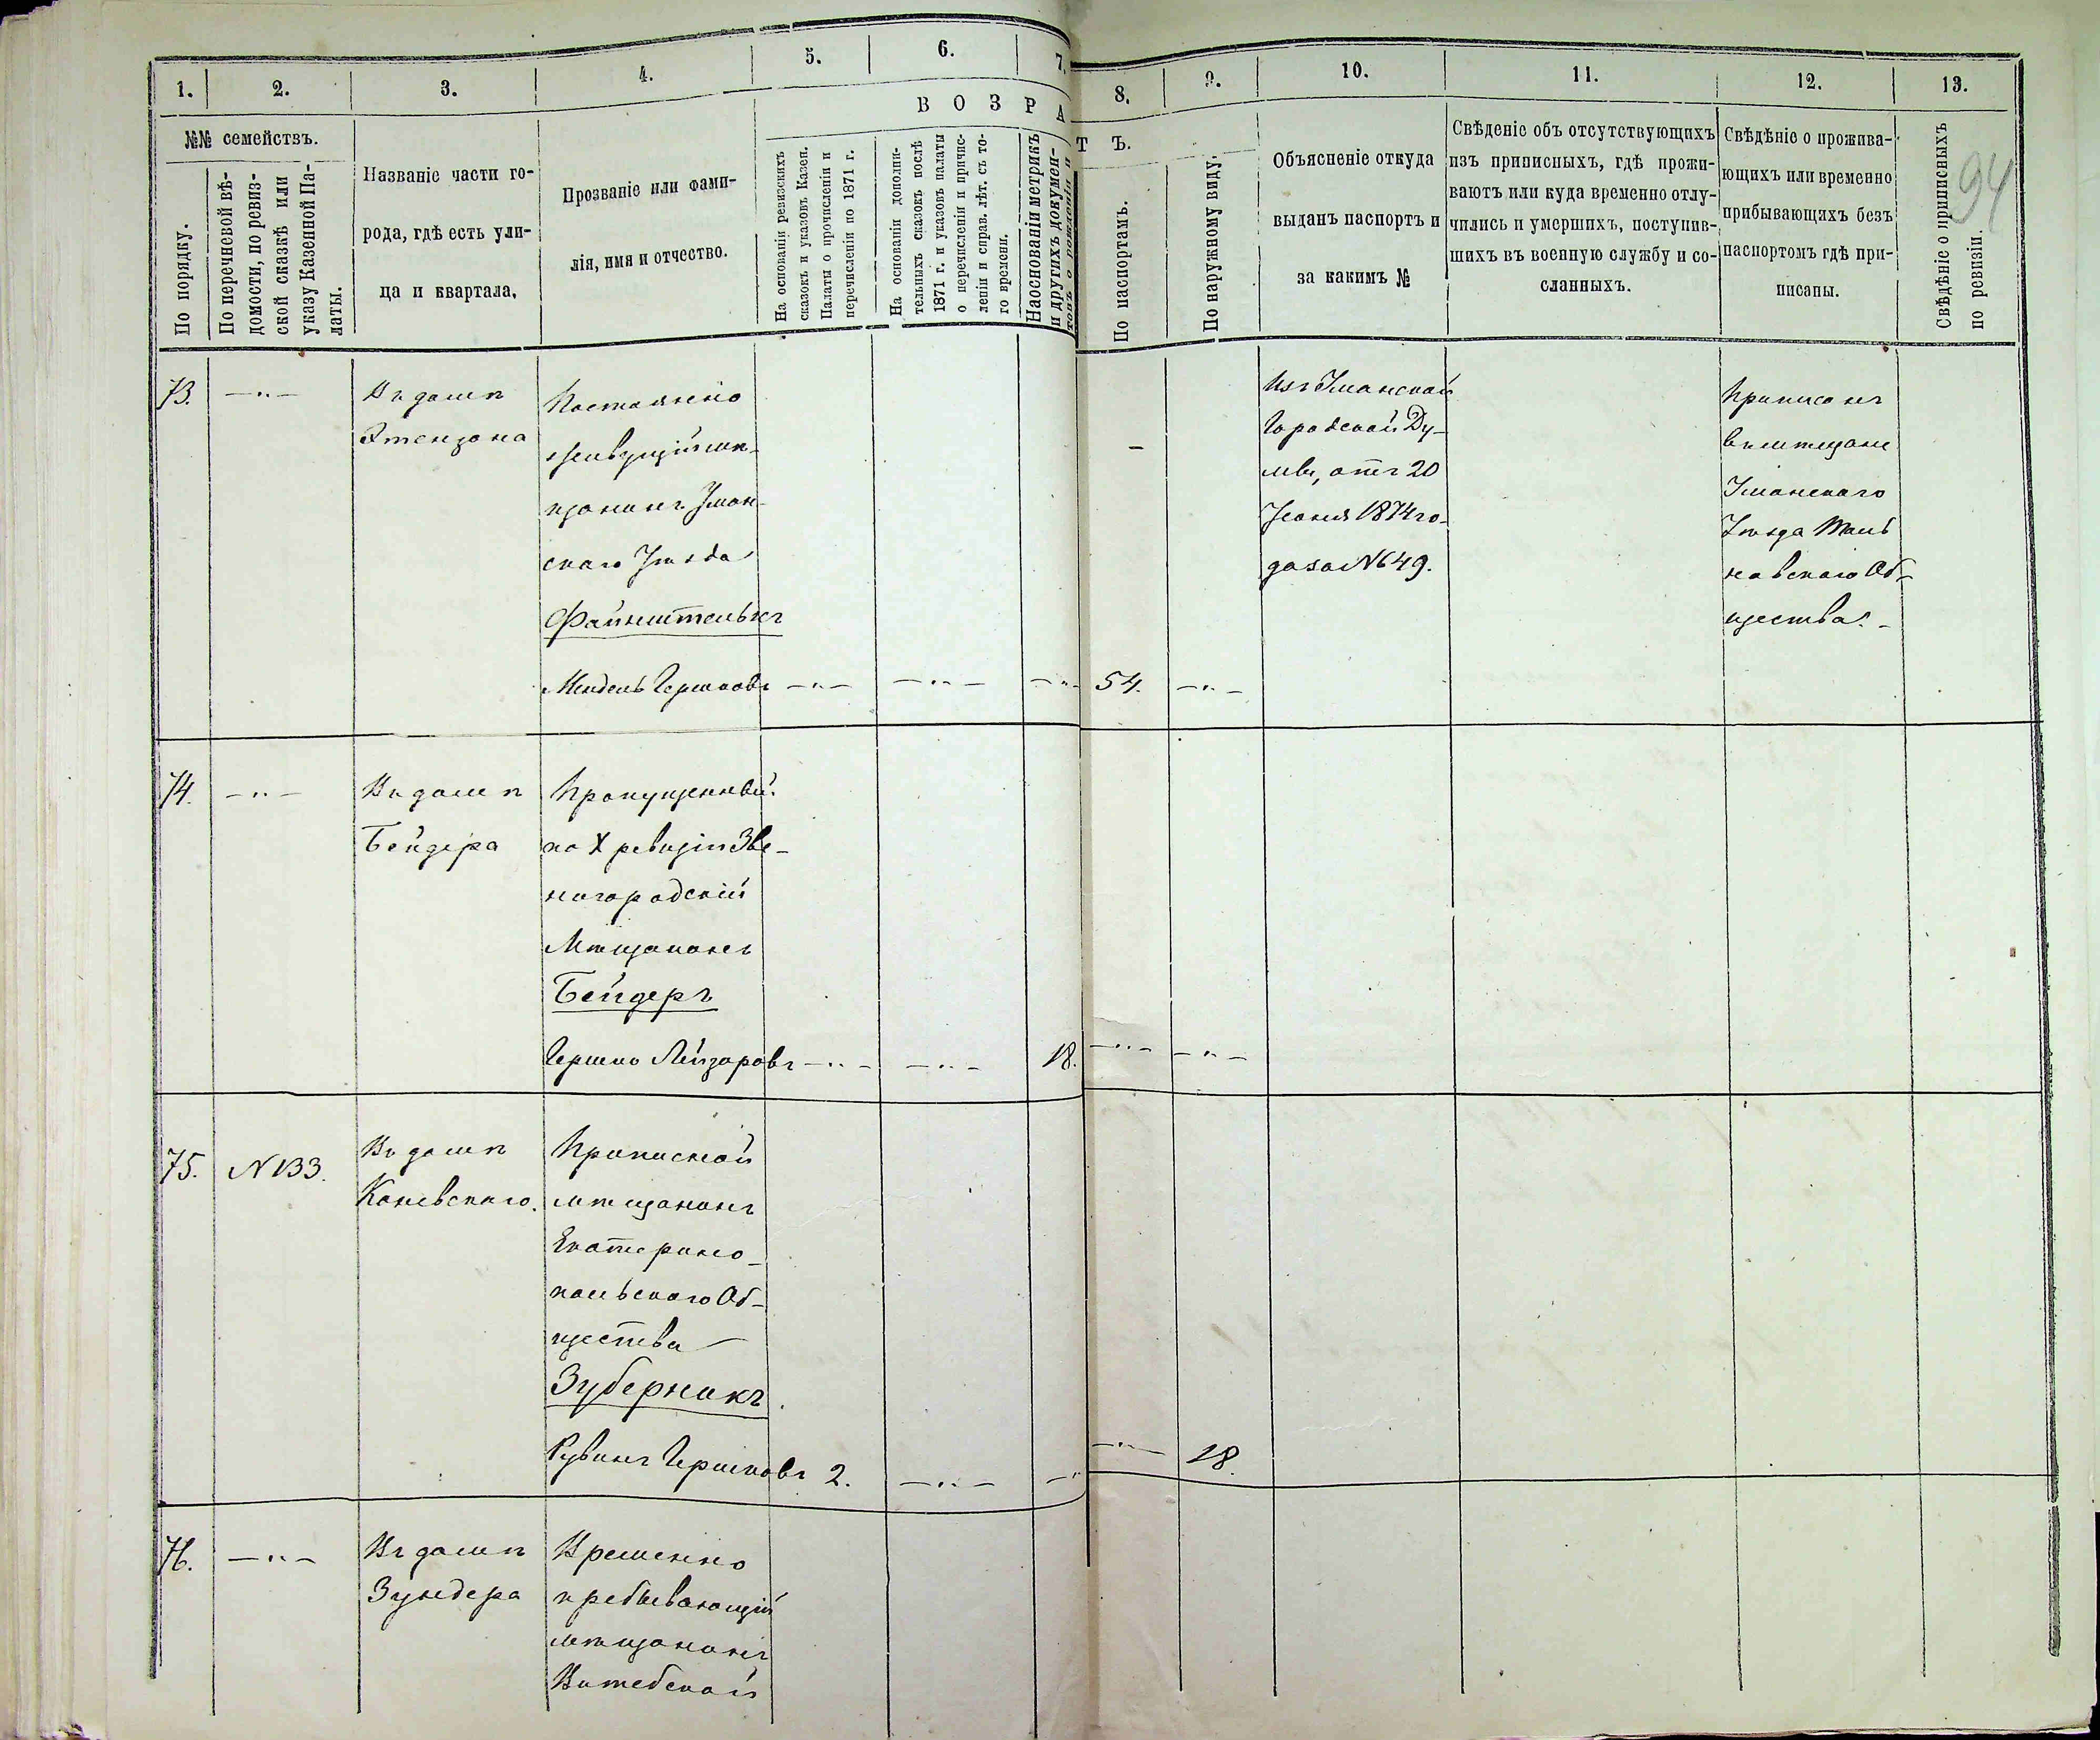 1.
2.
3.
4.
5.
6.
7.
8.
9.
10.
11.
12.
13.
94
ВОЗРА
ТЪ.
№№ семействъ.
По порядку.
По перечневой вѣ-
домости, по ревиз-
ской сказкѣ или
указу Казенной Па-
латы.
Названіе части го-
рода, гдѣ есть ули-
ца и квартала.
Прозваніе или фами-
лія, имя и отчество.
На основаніи ревизскихъ
сказокъ и указовъ Казен.
Палаты о прочисленіи и
перечисленіи по 1871 г.
На основаніи дополни-
тельныхъ сказокъ послѣ
1871 г. и указовъ палаты
о перечисленіи и причис-
леніи и справ. лѣт. съ то-
го времени.
На основаніи метрикъ
и другихъ докумен-
товъ о рожденіи и
По паспортамъ.
По наружному виду.
Объясненіе откуда
выданъ паспортъ и
за какимъ №
Свѣденіе объ отсутствующихъ
изъ приписныхъ, гдѣ прожи-
ваютъ или куда временно отлу-
чились и умершихъ, поступив-
шихъ въ военную службу и со-
сланныхъ.
Свѣдѣніе о прожива-
ющихъ или временно
прибывающихъ безъ
паспортомъ гдѣ при-
писаны.
Свѣдѣніе о приписныхъ
по ревизіи.
73.
—"—
Въ домѣ
Этензона
Постоянно
живущій мѣ-
щанинъ Уман-
скаго Уѣзда
Файнштейнъ
Мендель Гершковъ
—"—
—"—
—"—
54.
—"—
Изъ Уманской
Городской Ду-
мы, отъ 20
Іюня 1874 го-
да за №649.
Приписанъ
въ мѣщане
Уманскаго
Уѣзда Таль
новскаго Об-
щества.-
74.
—"—
Въ домѣ
Бейдера
Пропущенный
по X ревизіи Зве-
нигородскій
Мѣщанинъ
Бейдеръ
Гершко Лейзоровъ
—"—
—"—
18.
—"—
—"—
75.
№133.
Въ домѣ
Каневскаго.
Приписной
мѣщанинъ
Екатерино-
польскаго Об-
щества
Зуберникъ
Рувинъ Гершковъ
2.
—"—
—"
—"—
18.
76.
—"—
Въ домѣ
Зундера
Временно
пребывающій
мѣщанинъ
Витебской